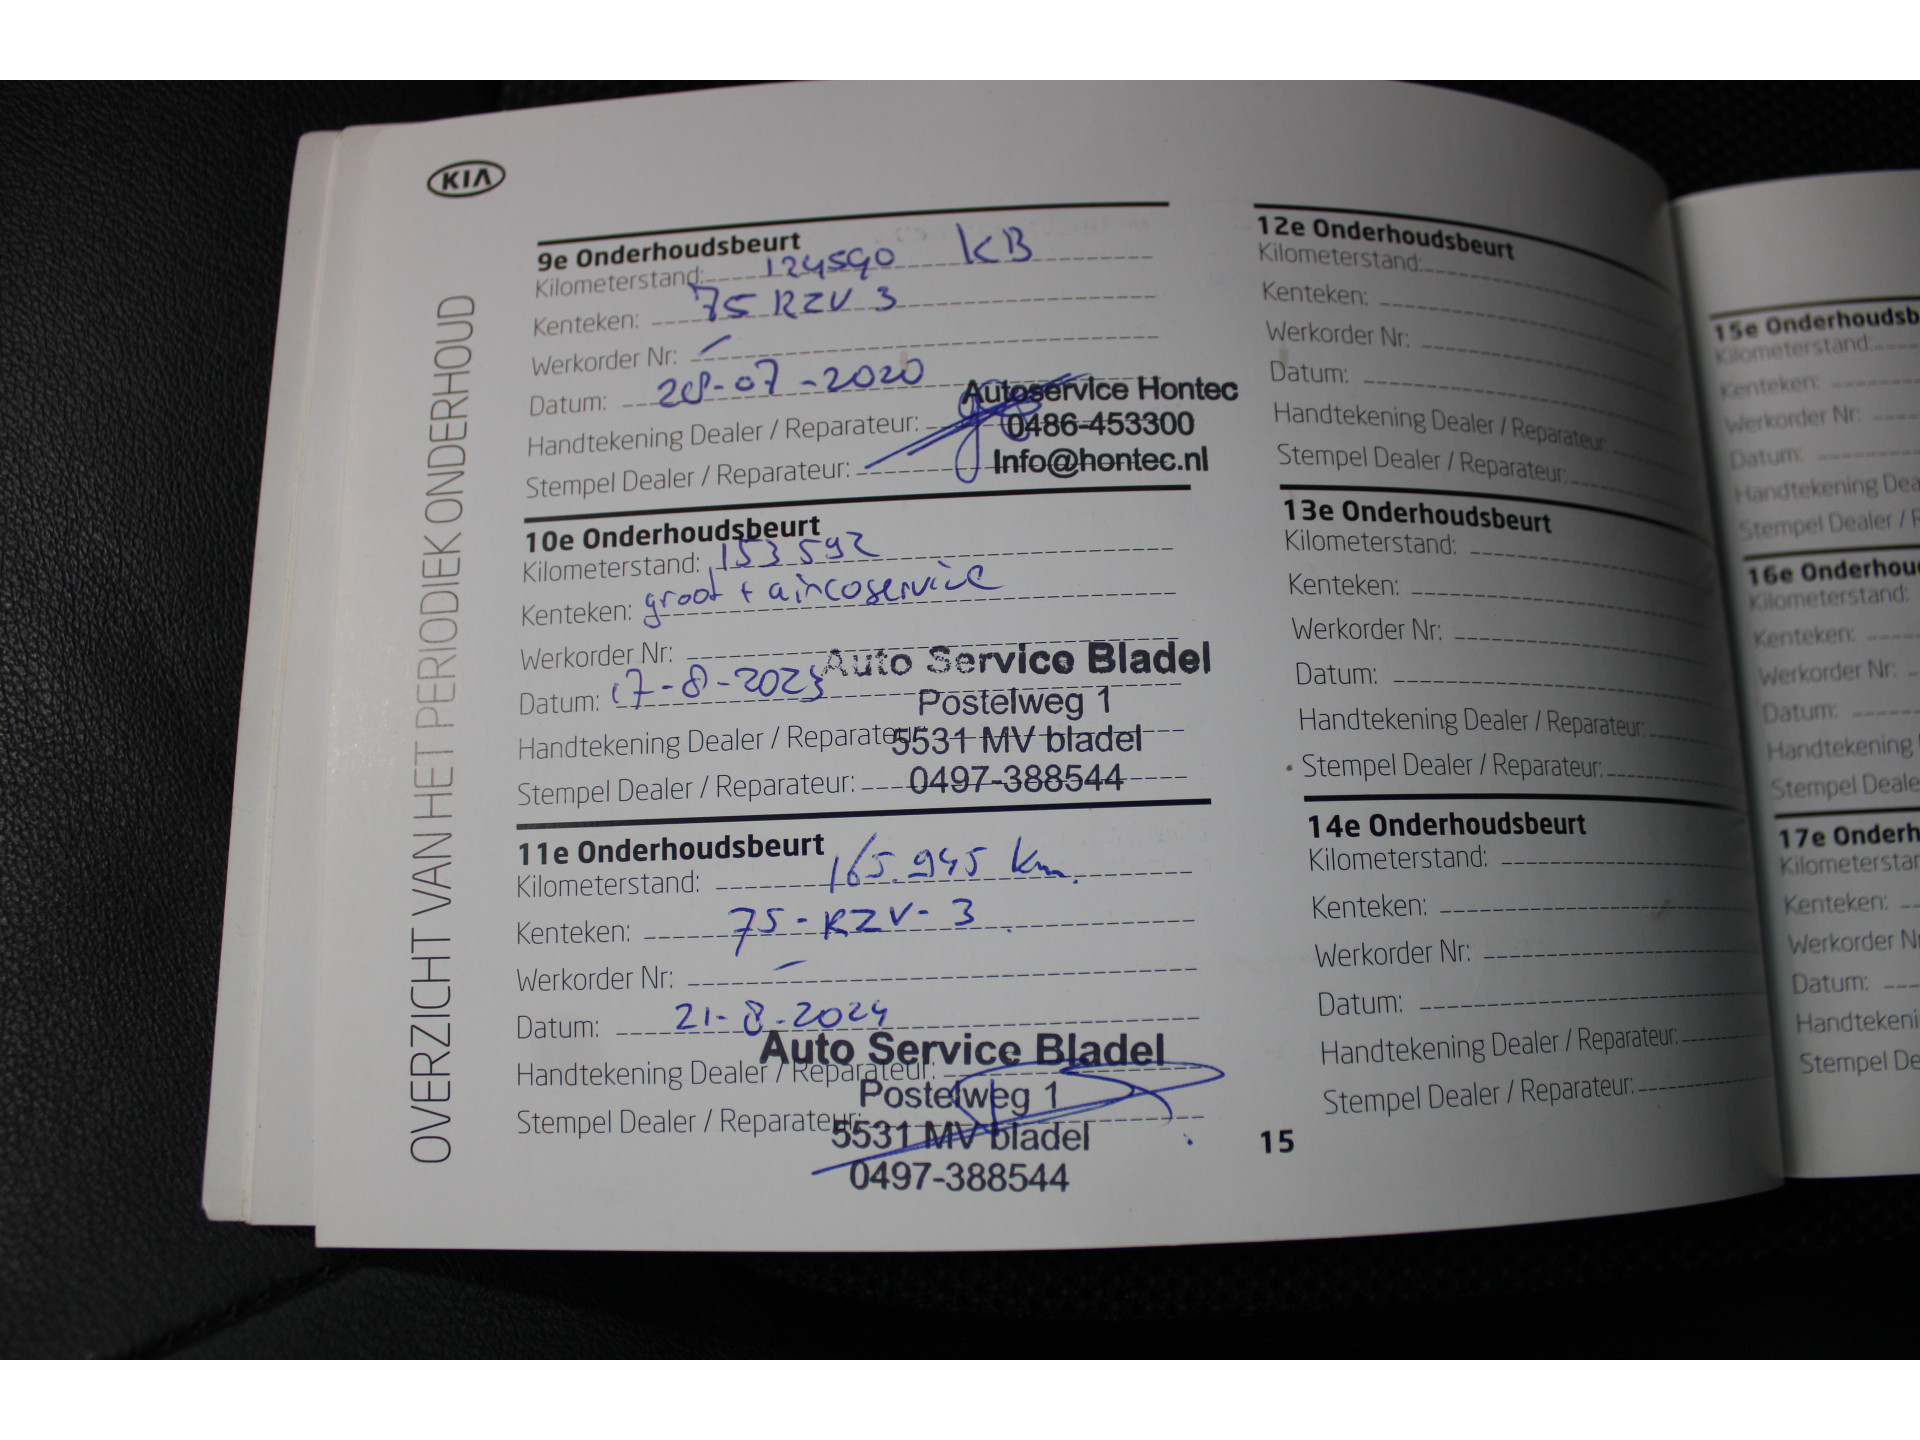 KIA
OVERZICHT VAN HET PERIODIEK ONDERHOUD
9e Onderhoudsbeurt
Kilometerstand: 124590 KB
Kenteken: 75 RZV 3
Werkorder Nr: -
Datum: 28-07-2020
Handtekening Dealer / Reparateur:
Stempel Dealer / Reparateur:
Autoservice Hontec
0486-453300
Info@hontec.nl
10e Onderhoudsbeurt
Kilometerstand: 153592
Kenteken: groot + aircoservice
Werkorder Nr:
Datum: 17-8-2023
Handtekening Dealer / Reparateur:
Stempel Dealer / Reparateur:
Auto Service Bladel
Postelweg 1
5531 MV bladel
0497-388544
11e Onderhoudsbeurt
Kilometerstand: 165.945 km.
Kenteken: 75-RZV-3
Werkorder Nr: -
Datum: 21-8-2024
Handtekening Dealer / Reparateur:
Stempel Dealer / Reparateur:
Auto Service Bladel
Postelweg 1
5531 MV bladel
0497-388544
12e Onderhoudsbeurt
Kilometerstand:
Kenteken:
Werkorder Nr:
Datum:
Handtekening Dealer / Reparateur:
Stempel Dealer / Reparateur:
13e Onderhoudsbeurt
Kilometerstand:
Kenteken:
Werkorder Nr:
Datum:
Handtekening Dealer / Reparateur:
Stempel Dealer / Reparateur:
14e Onderhoudsbeurt
Kilometerstand:
Kenteken:
Werkorder Nr:
Datum:
Handtekening Dealer / Reparateur:
Stempel Dealer / Reparateur:
15
15e Onderhoudsb
Kilometerstand:
Kenteken:
Werkorder Nr:
Datum:
Handtekening Dea
Stempel Dealer / R
16e Onderhou
Kilometerstand:
Kenteken:
Werkorder Nr:
Datum:
Handtekening
Stempel Deale
17e Onderh
Kilometerstar
Kenteken:
Werkorder N
Datum:
Handtekeni
Stempel De